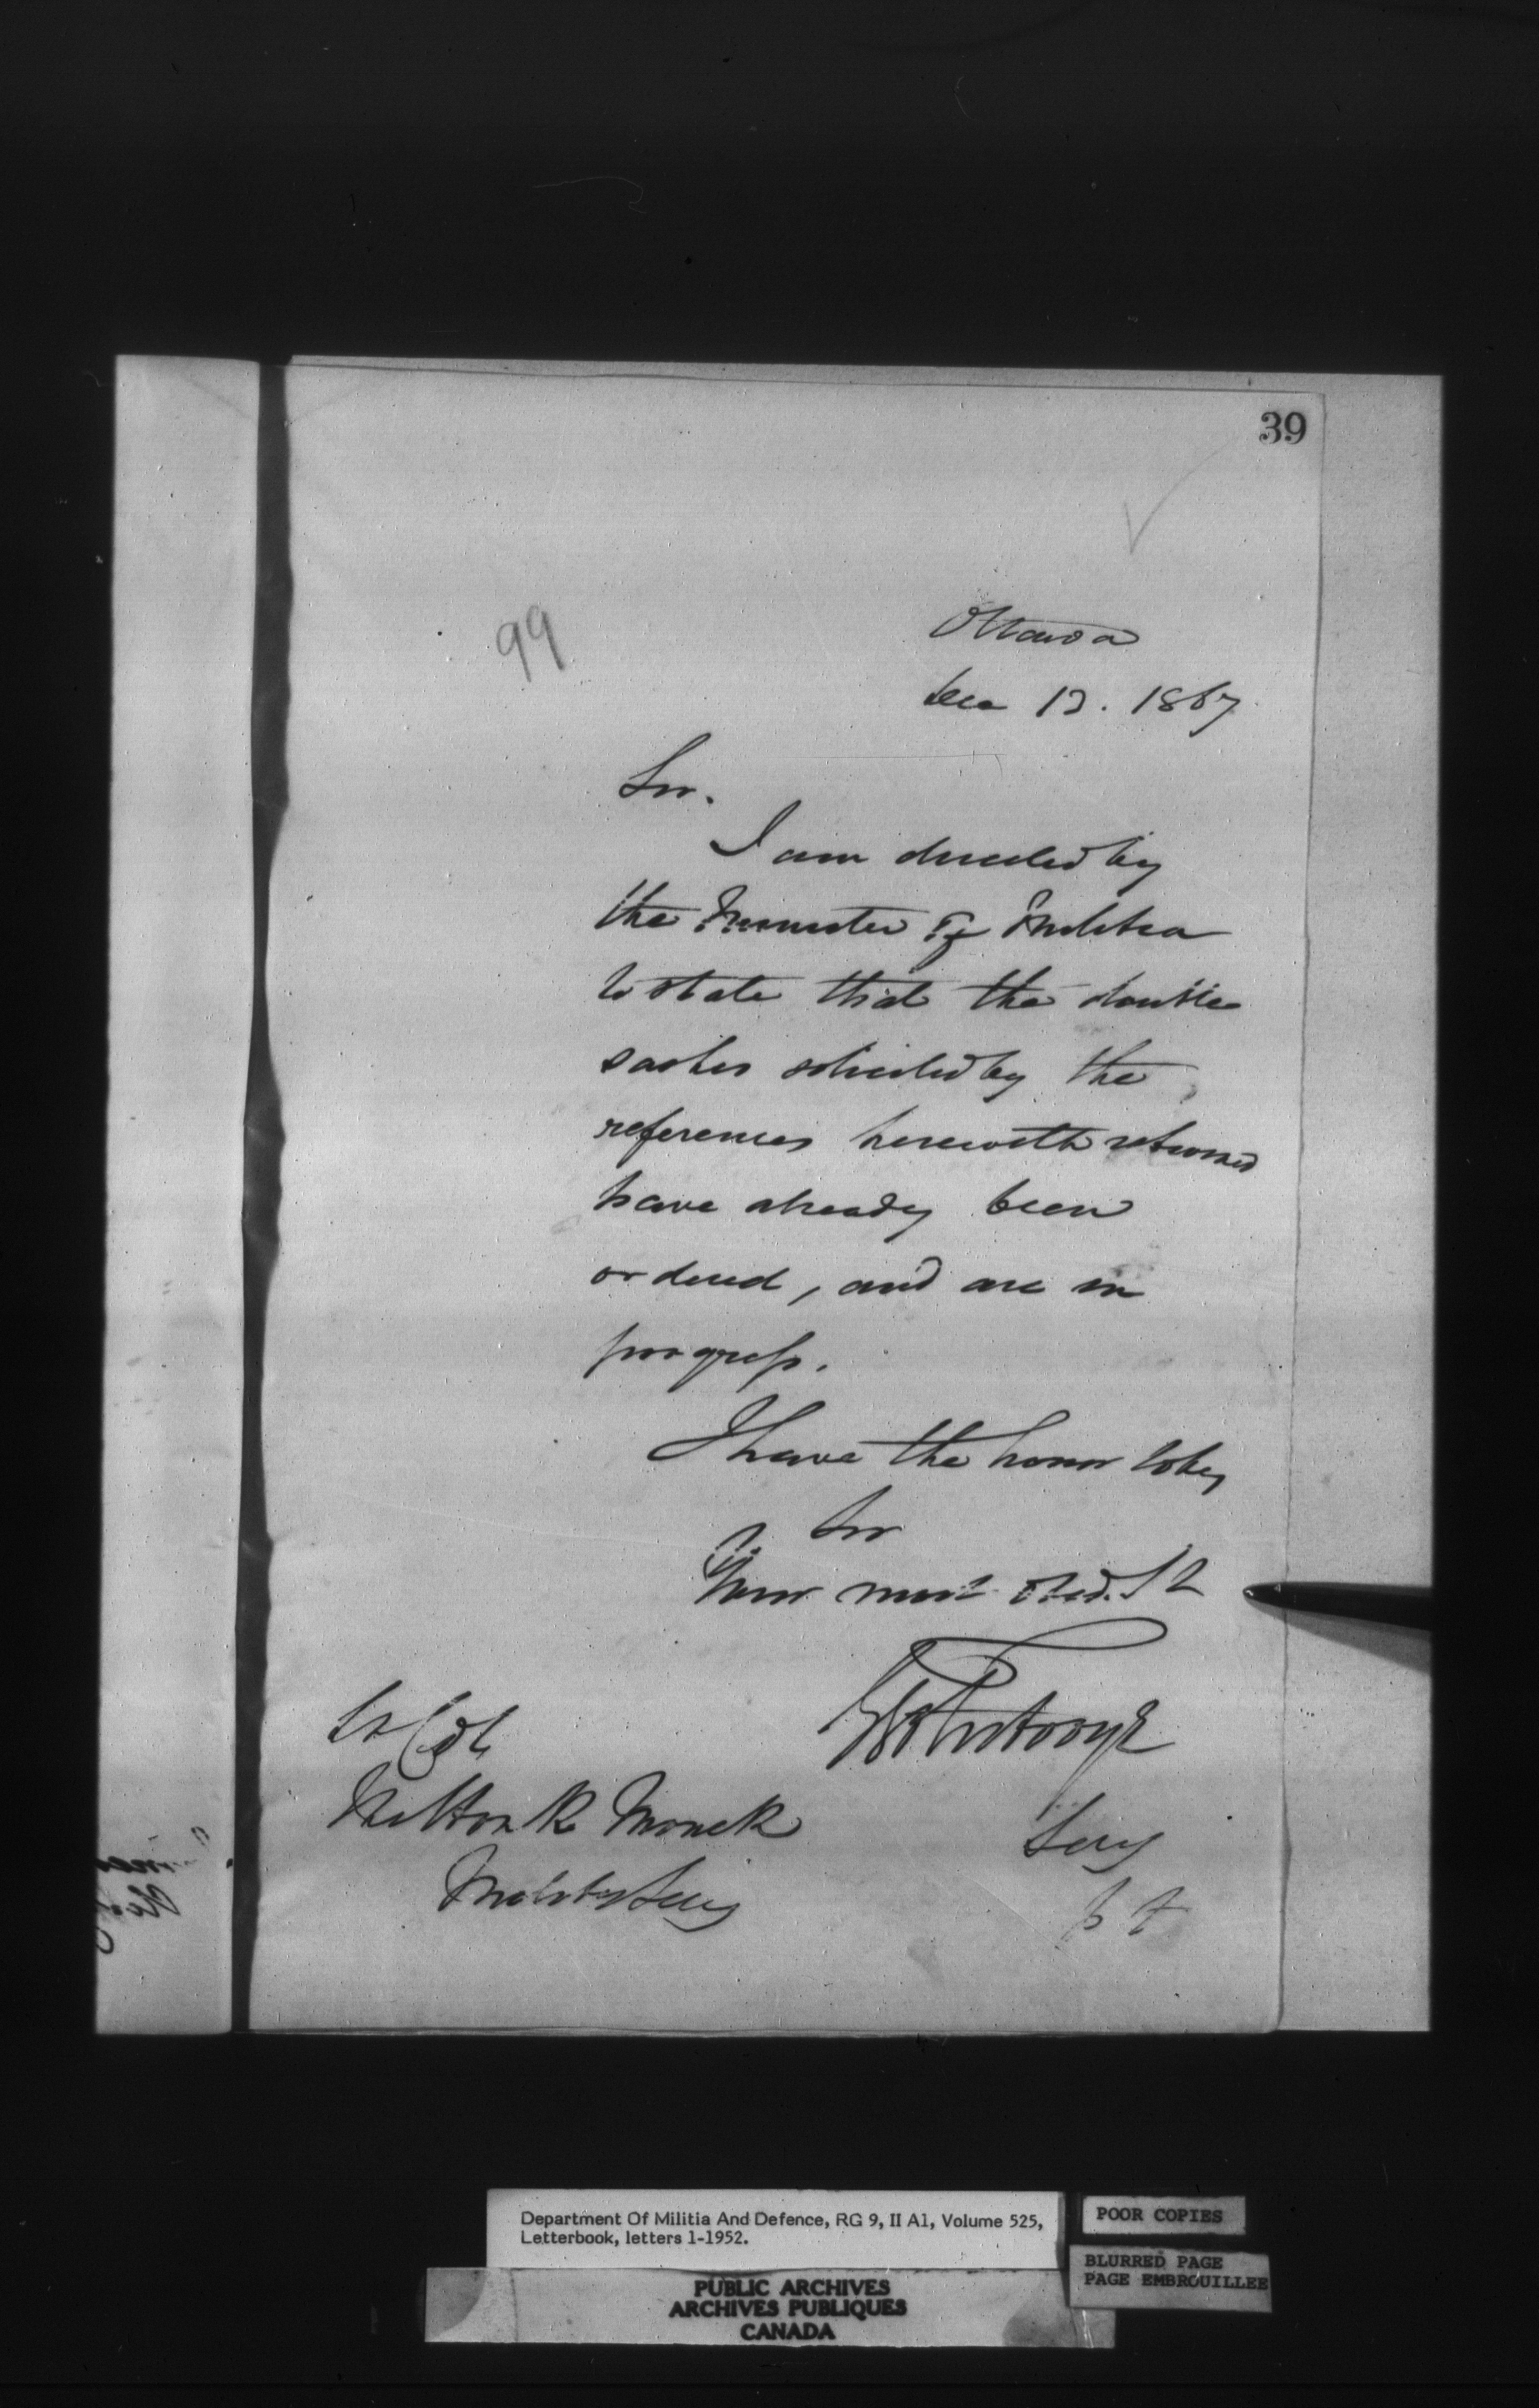 39
99
Ottawa
Dec 13. 1867
Sir.
I am directed by
the Minister of Militia
to state that the double
sashes solicited by the
references herewith returned
have already been
ordered, and are in
progress.
I have the honor to be,
Sir
Your most obed. St
Lt Col
The Hon R. Monck
Military Secy
Secy
Department Of Militia And Defence, RG 9, II A1, Volume 525,
Letterbook, letters 1-1952.
POOR COPIES
BLURRED PAGE
PAGE EMBROUILLEE
PUBLIC ARCHIVES
ARCHIVES PUBLIQUES
CANADA